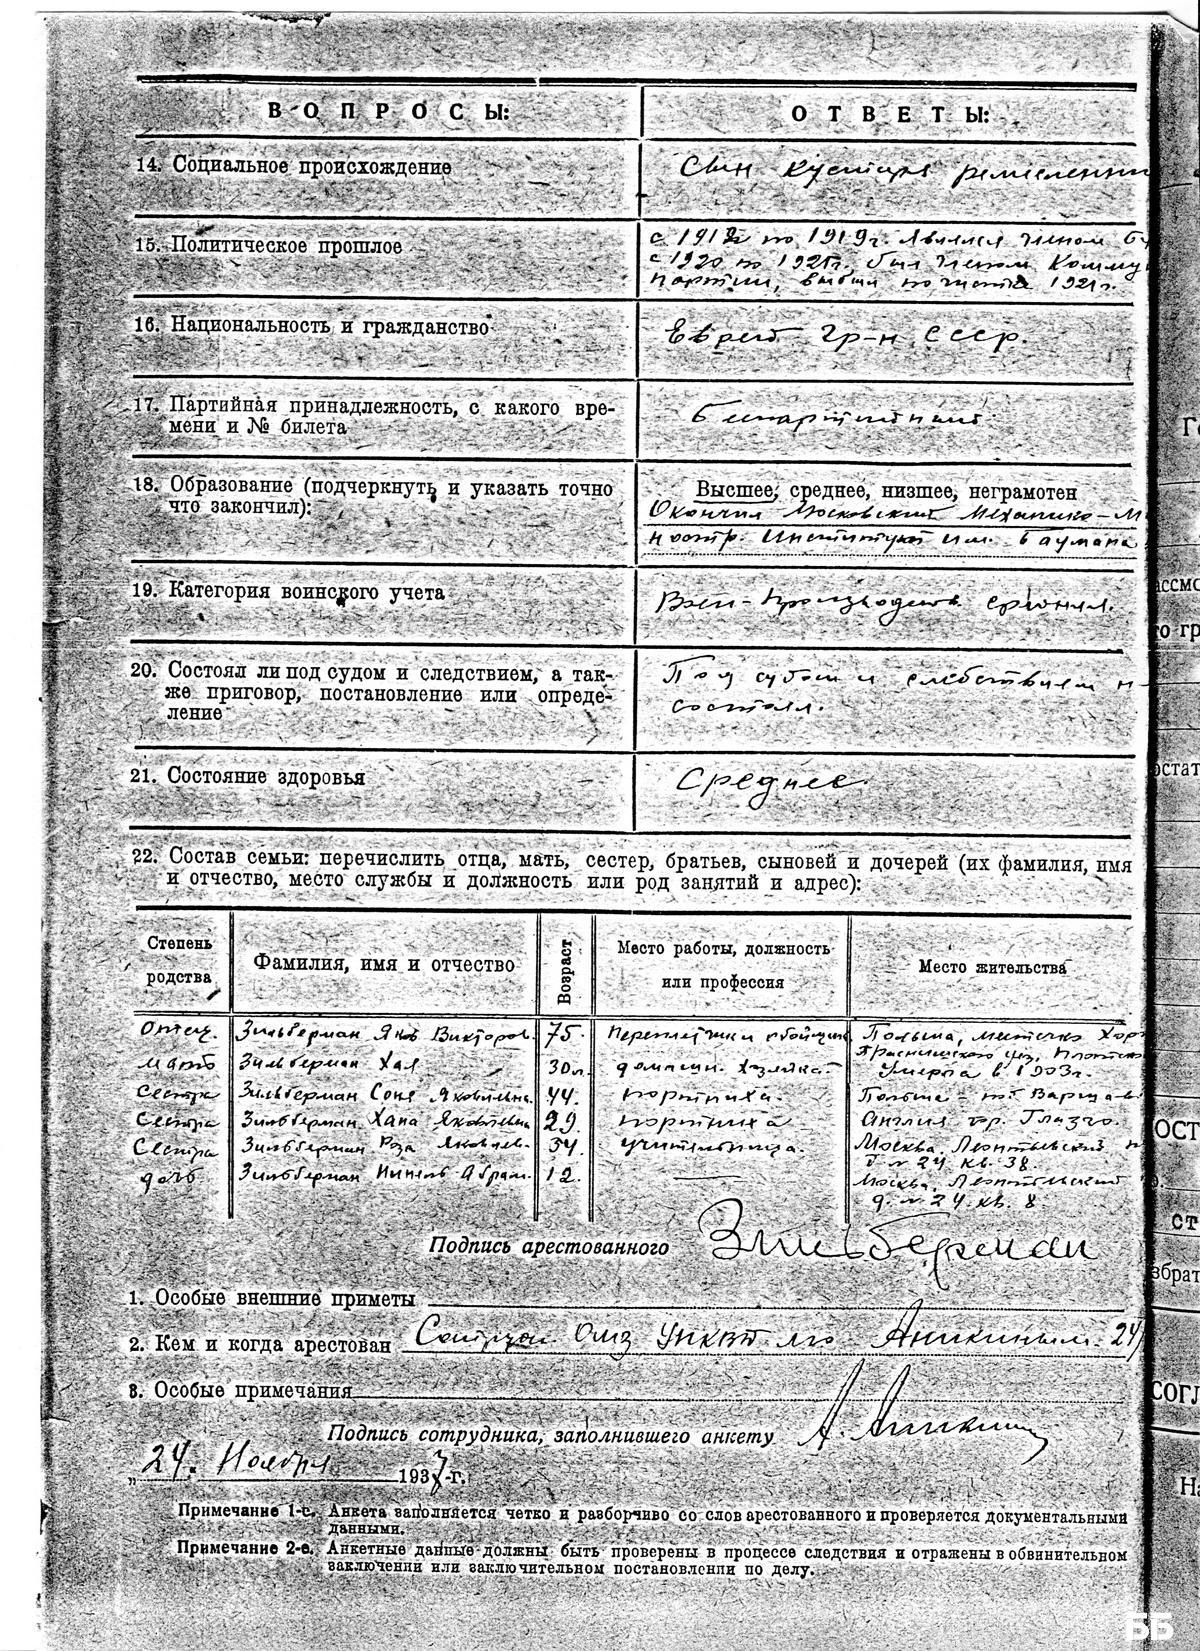 ВОПРОСЫ: ОТВЕТЫ:
14. Социальное происхождение Сын кустаря
15. Политическое прошлое с 1918 по 1919 г. являлся членом
с 1920 по 1921г. был членом Комму
партии, выбыл по чистке 1921г.
16. Национальность и гражданство Еврей гр-н СССР.
17. Партийная принадлежность, с какого вре-
мени и № билета Беспартийный
18. Образование (подчеркнуть и указать точно Высшее, среднее, низшее, неграмотен
что закончил): Окончил Московский Механико-М
Институт им. Баумана
19. Категория воинского учета
20. Состоял ли под судом и следствием, а так- Под судом и следствием н
же приговор, постановление или опреде- состоял.
ление
21. Состояние здоровья Среднее.
22. Состав семьи: перечислить отца, мать, сестер, братьев, сыновей и дочерей (их фамилия, имя
и отчество, место службы и должность или род занятий и адрес):
Степень родства Фамилия, имя и отчество Возраст Место работы, должность или профессия Место жительства
Отец. Зильберман Яков Викторов. 75. Польша, местечко Хор
мать Зильберман Хая 30л. домашн. Хозяйка Умерла в 1903г.
Сестра Зильберман Соня Яковлевна. 44. портниха. Польша - Варшав
Сестра Зильберман Хана Яковлевна 29. портниха Англия гор. Глазго.
Сестра Зильберман Роза Яковлев. 34. учительница. Москва Леонтьевский
д № 24 кв. 38.
дочь Зильберман Нинель Абрам. 12. Москва, Леонтьевский
д. № 24. кв. 8.
Подпись арестованного Зильберман
1. Особые внешние приметы
2. Кем и когда арестован Аникиным 24/
3. Особые примечания
Подпись сотрудника, заполнившего анкету А. Аникин
„24. Ноября 1937-г.
Примечание 1-е. Анкета заполняется четко и разборчиво со слов арестованного и проверяется документальными
данными.
Примечание 2-е. Анкетные данные должны быть проверены в процессе следствия и отражены в обвинительном
заключении или заключительном постановлении по делу.
ББ